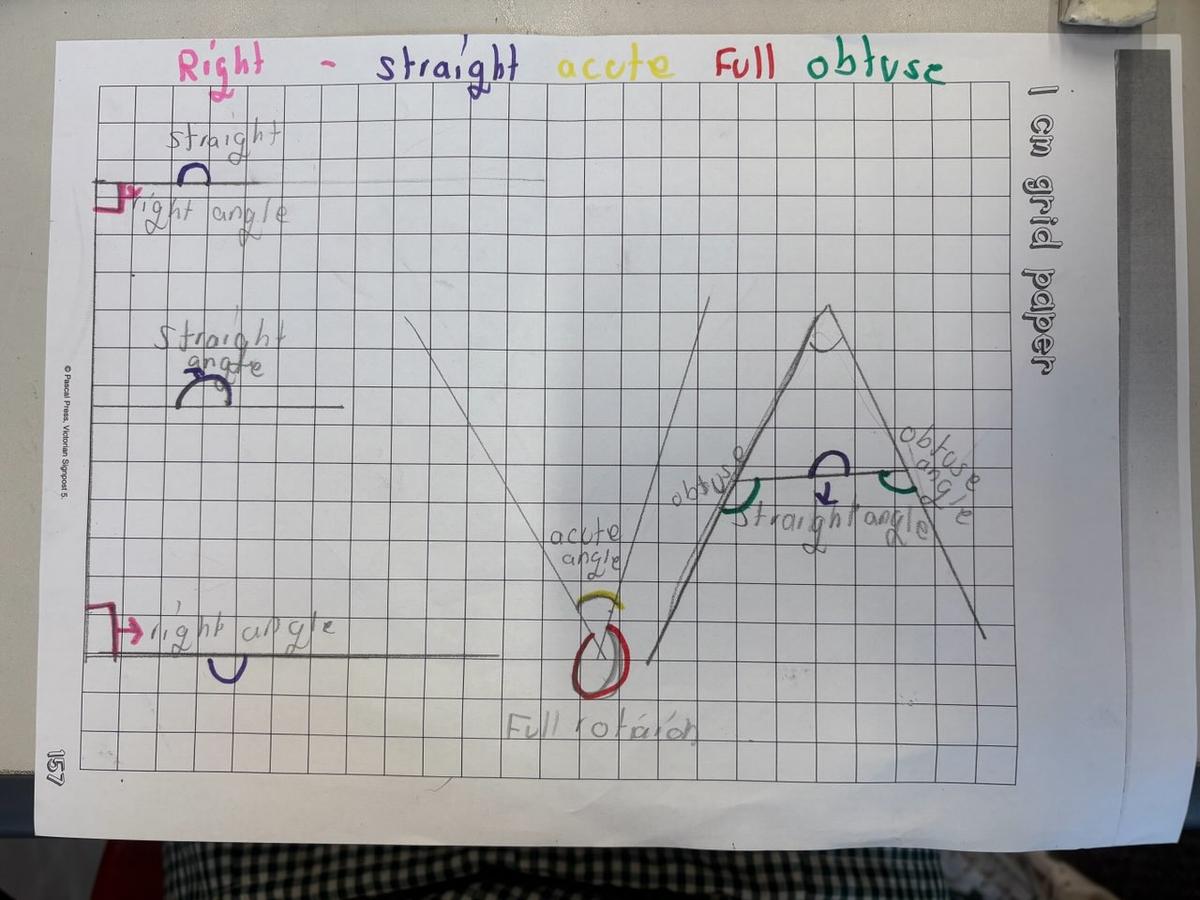 Right - straight acute Full obtuse
1 cm grid paper
straight
right angle
straight
angle
obtuse
obtuse
angle
straight angle
acute
angle
right angle
Full rotáión
© Pascal Press, Victorian Signpost 5.
157